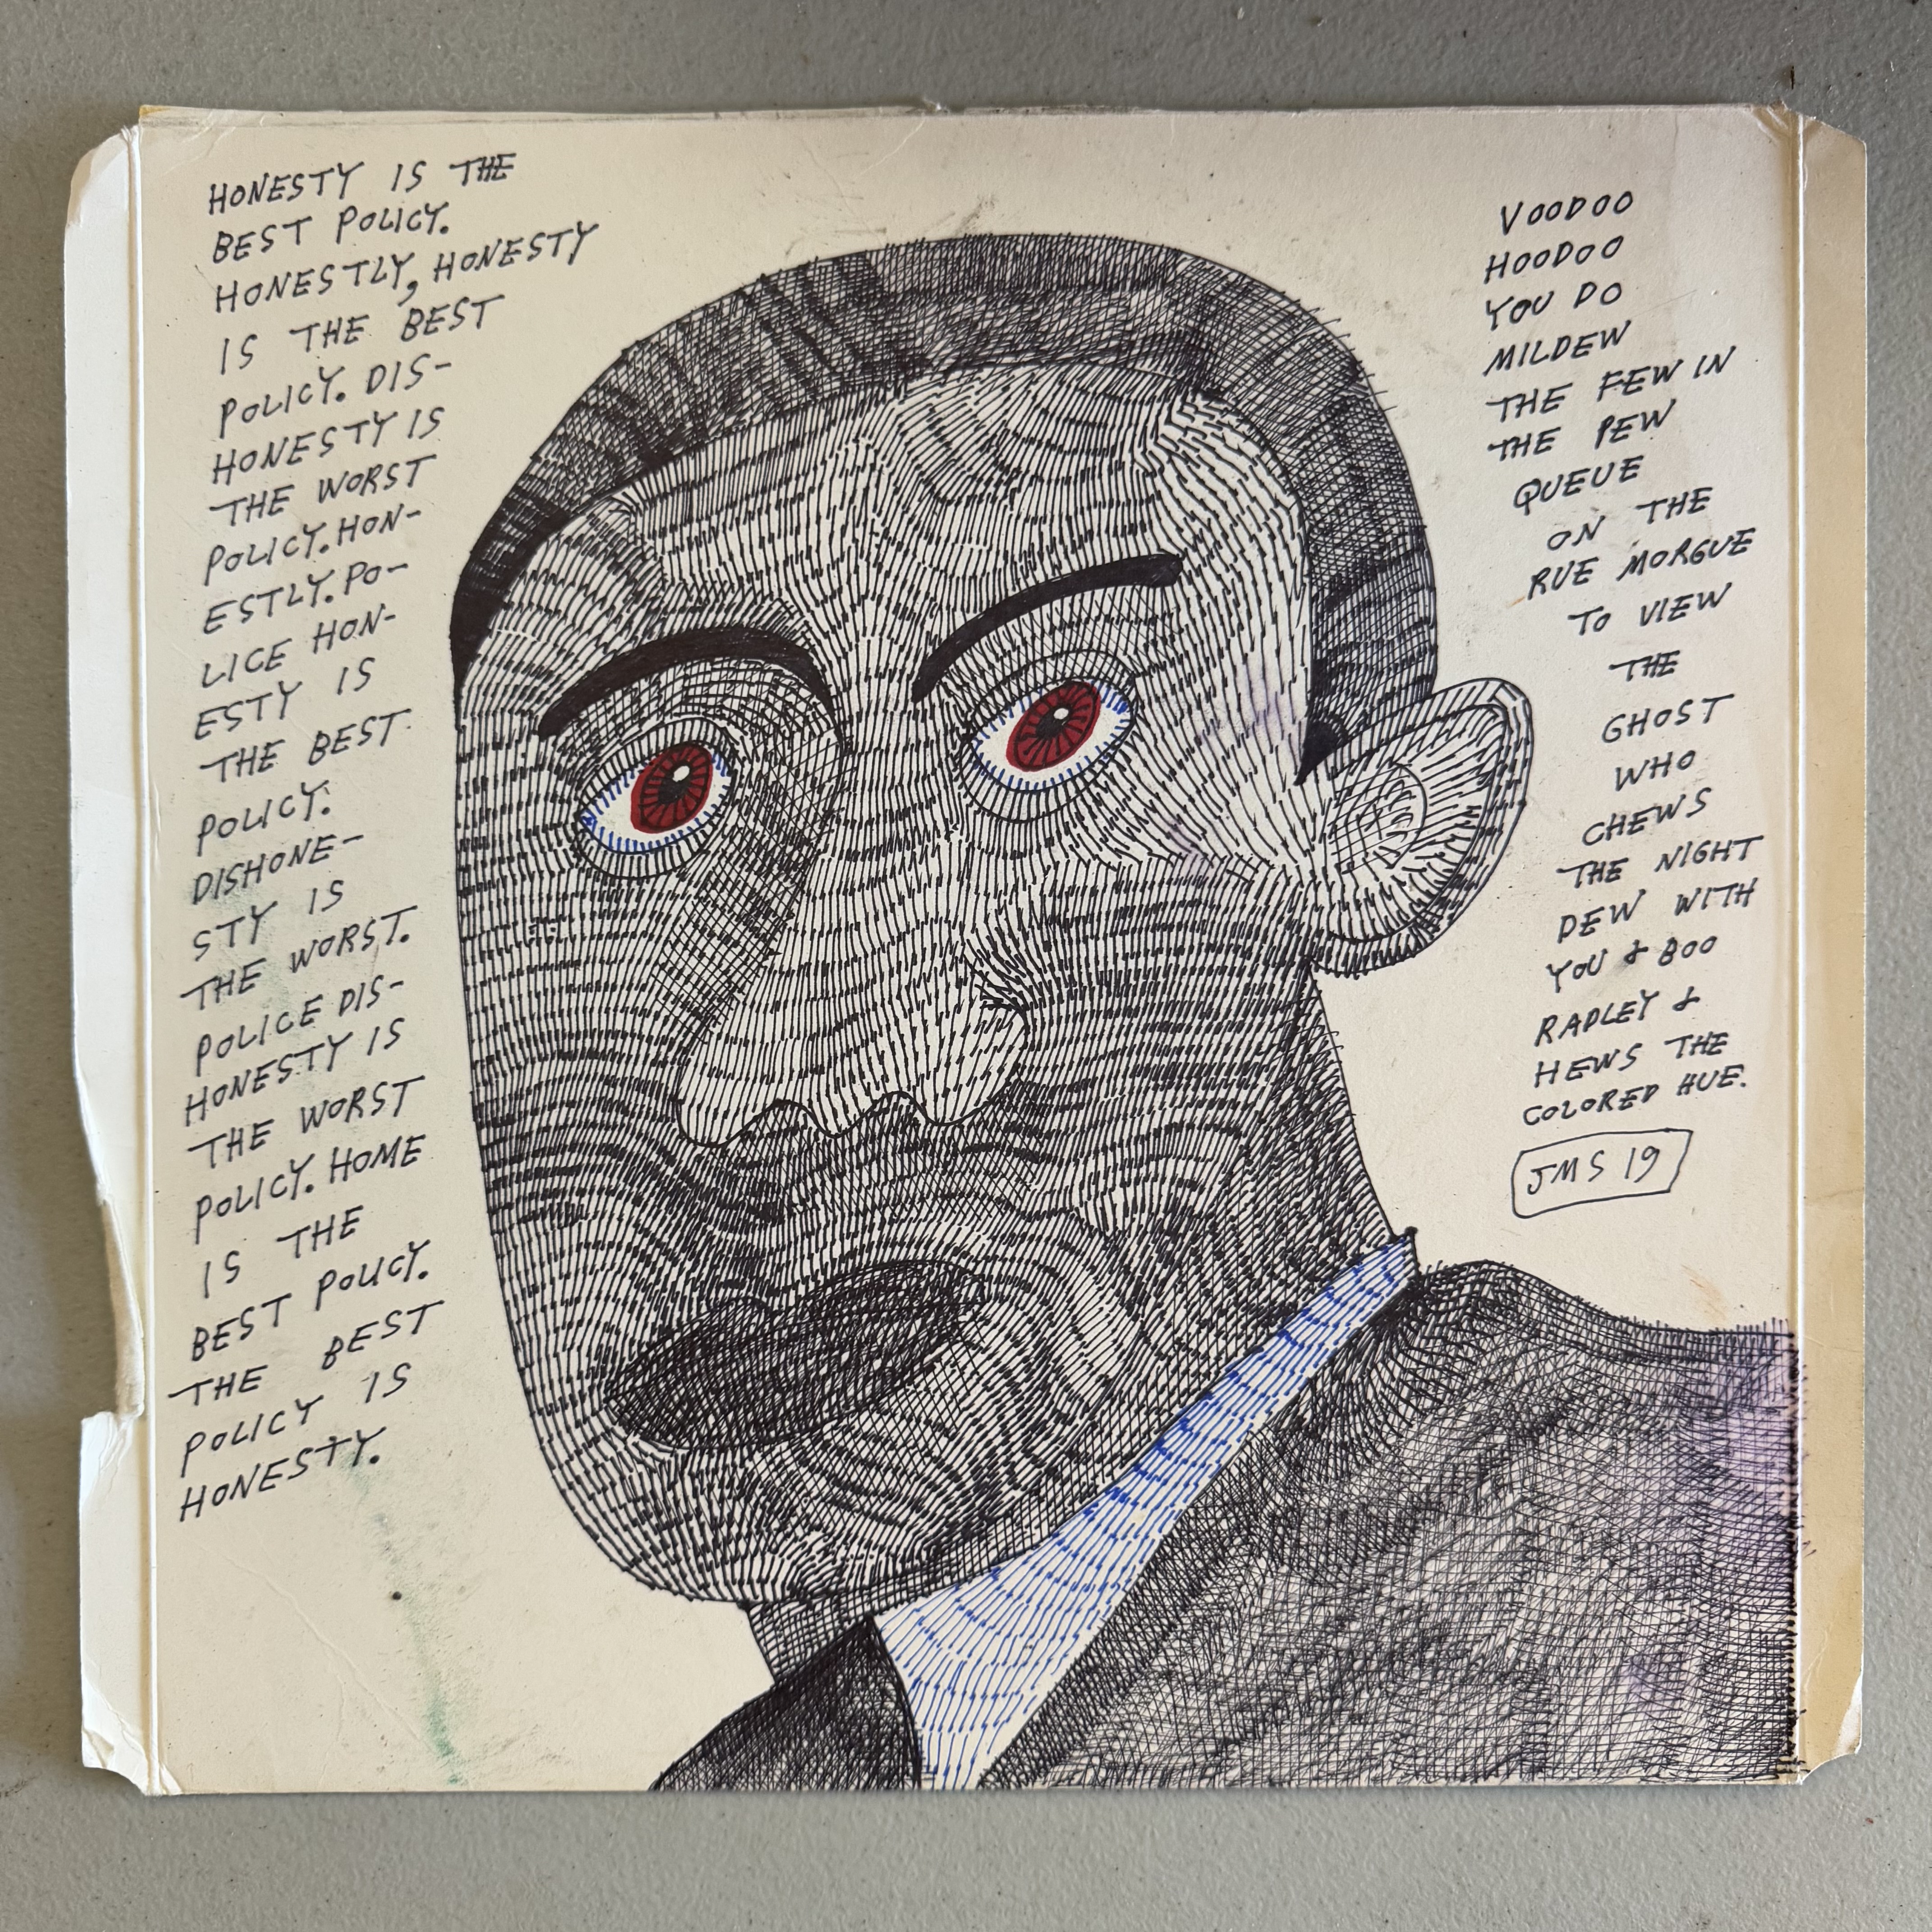 HONESTY IS THE
BEST POLICY.
HONESTLY, HONESTY
IS THE BEST
POLICY. DIS-
HONESTY IS
THE WORST
POLICY. HON-
ESTLY. PO-
LICE HON-
ESTY IS
THE BEST.
POLICY.
DISHONE-
STY IS
THE WORST.
POLICE DIS-
HONESTY IS
THE WORST
POLICY. HOME
IS THE
BEST POLICY.
THE BEST
POLICY IS
HONESTY.
VOODOO
HOODOO
YOU DO
MILDEW
THE FEW IN
THE PEW
QUEUE
ON THE
RUE MORGUE
TO VIEW
THE
GHOST
WHO
CHEWS
THE NIGHT
DEW WITH
YOU & BOO
RADLEY &
HEWS THE
COLORED HUE.
JMS 19